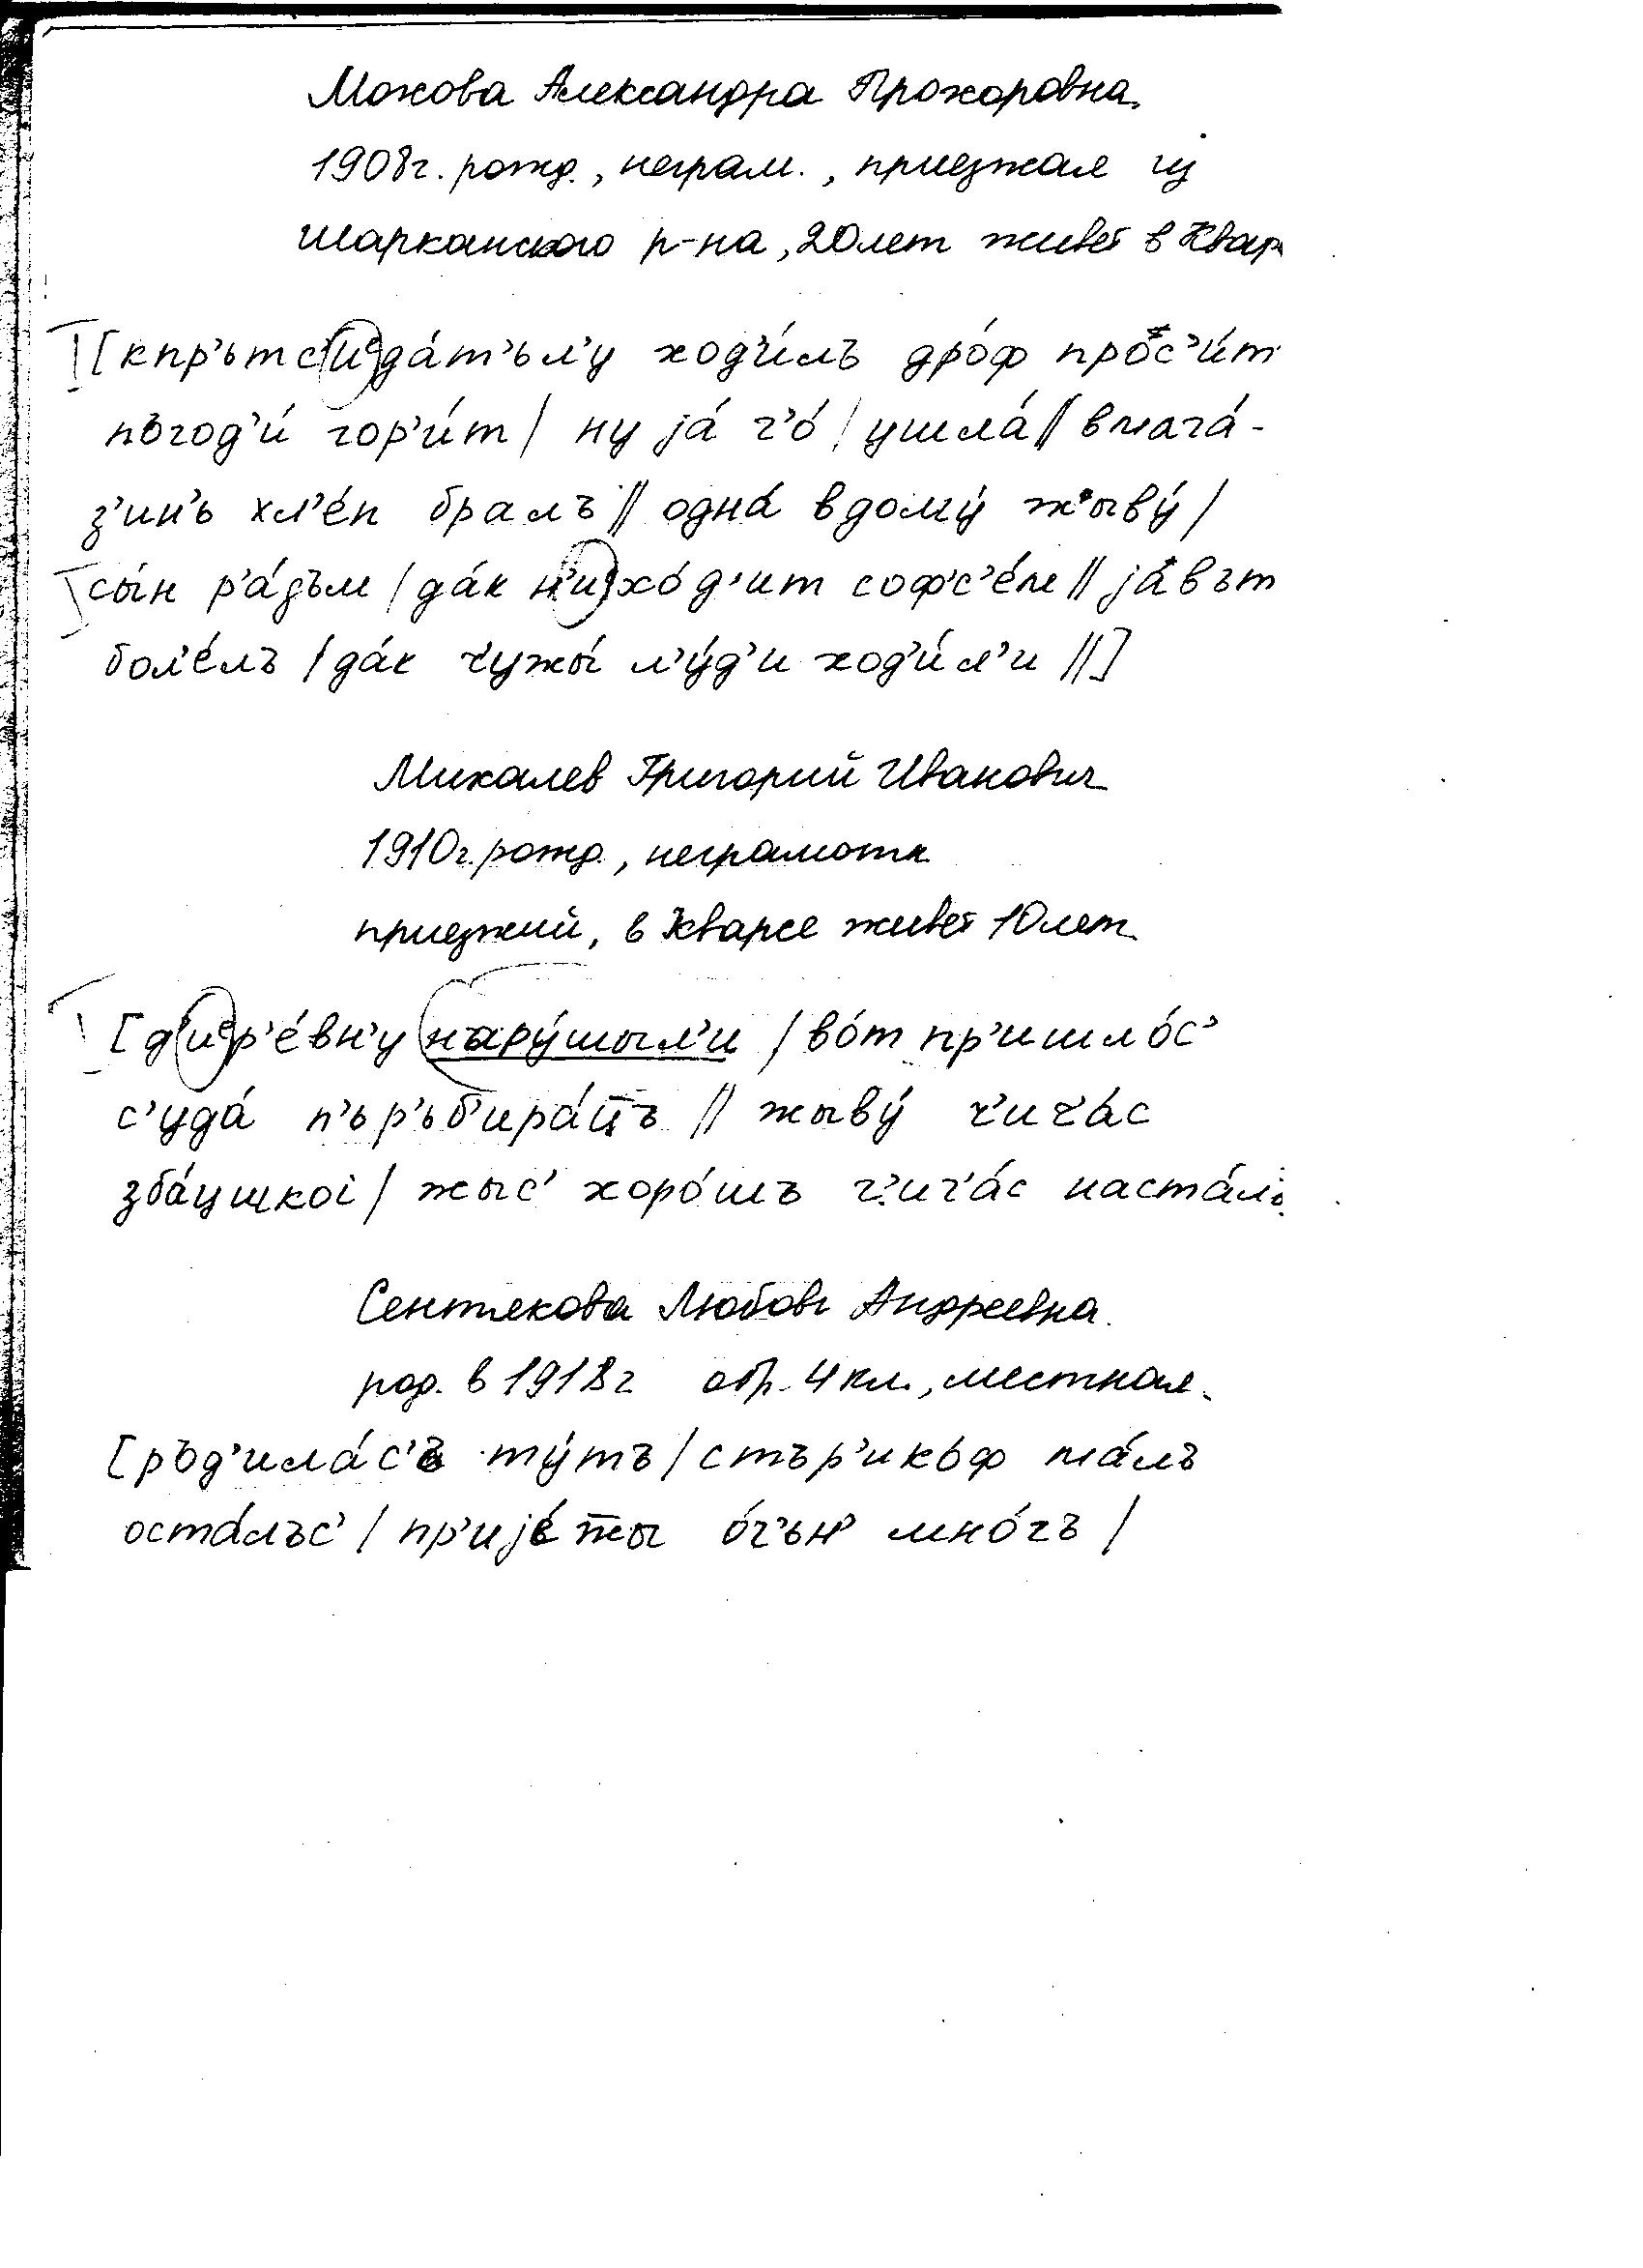 Мохова Александра Прохоровна.
1908г. рожд., неграм., приезжая из
Шарканского р-на, 20 лет живет в Квар
[кпр'ьтс'иᵉда́т'ьл'у ход'и́лъ дро́ф прос'и́т
пъгод'и́ гор'и́т / ну jа́ ч'о́ / ушла́ // вмага́-
з'ин'ь хл'е́п бралъ // одна́ вдому́ жыву́ /
сы́н р'а́дъм / да́к н'иᵉхо́д'ит соф'с'е́м // jа́ вът
бол'е́лъ / да́к ч'ужы́ л'у́д'и ход'и́л'и //]
Михалев Григорий Иванович
1910г. рожд., неграмотн.
приезжий, в Кварсе живет 10 лет.
[д'иᵉр'е́вн'у нару́шыл'и / во́т пр'ишло́с'
с'уда́ п'ър'ьб'ира́ц̄ъ // жыву́ ч'ич'а́с
зба́ушкоi / жыс' хоро́шъ ч'ич'а́с наста́лъ
Сентякова Любовь Андреевна.
род. в 1918г обр. 4 кл., местная.
[ръд'ила́с'ь ту́тъ / стър'ико́ф ма́лъ
оста́лъс' / пр'иjе́жжы о́ч'ьн' мно́гъ /